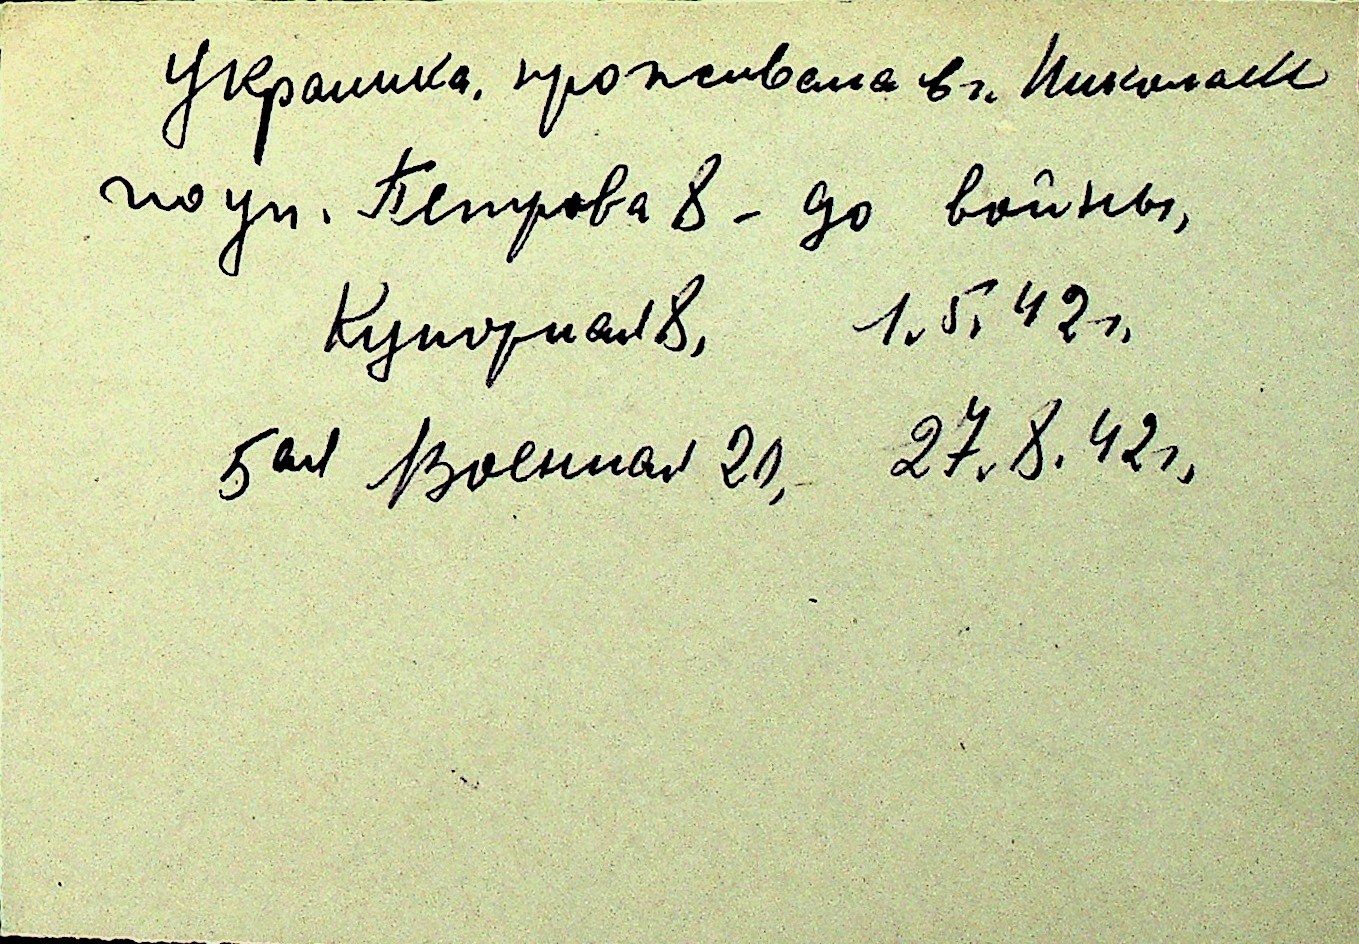 Украинка, проживала в г. Николаеве
по ул. Петрова 8 - до войны,
Купорная 8, 1.5.42 г.
5ая Военная 21, 27.8.42 г.